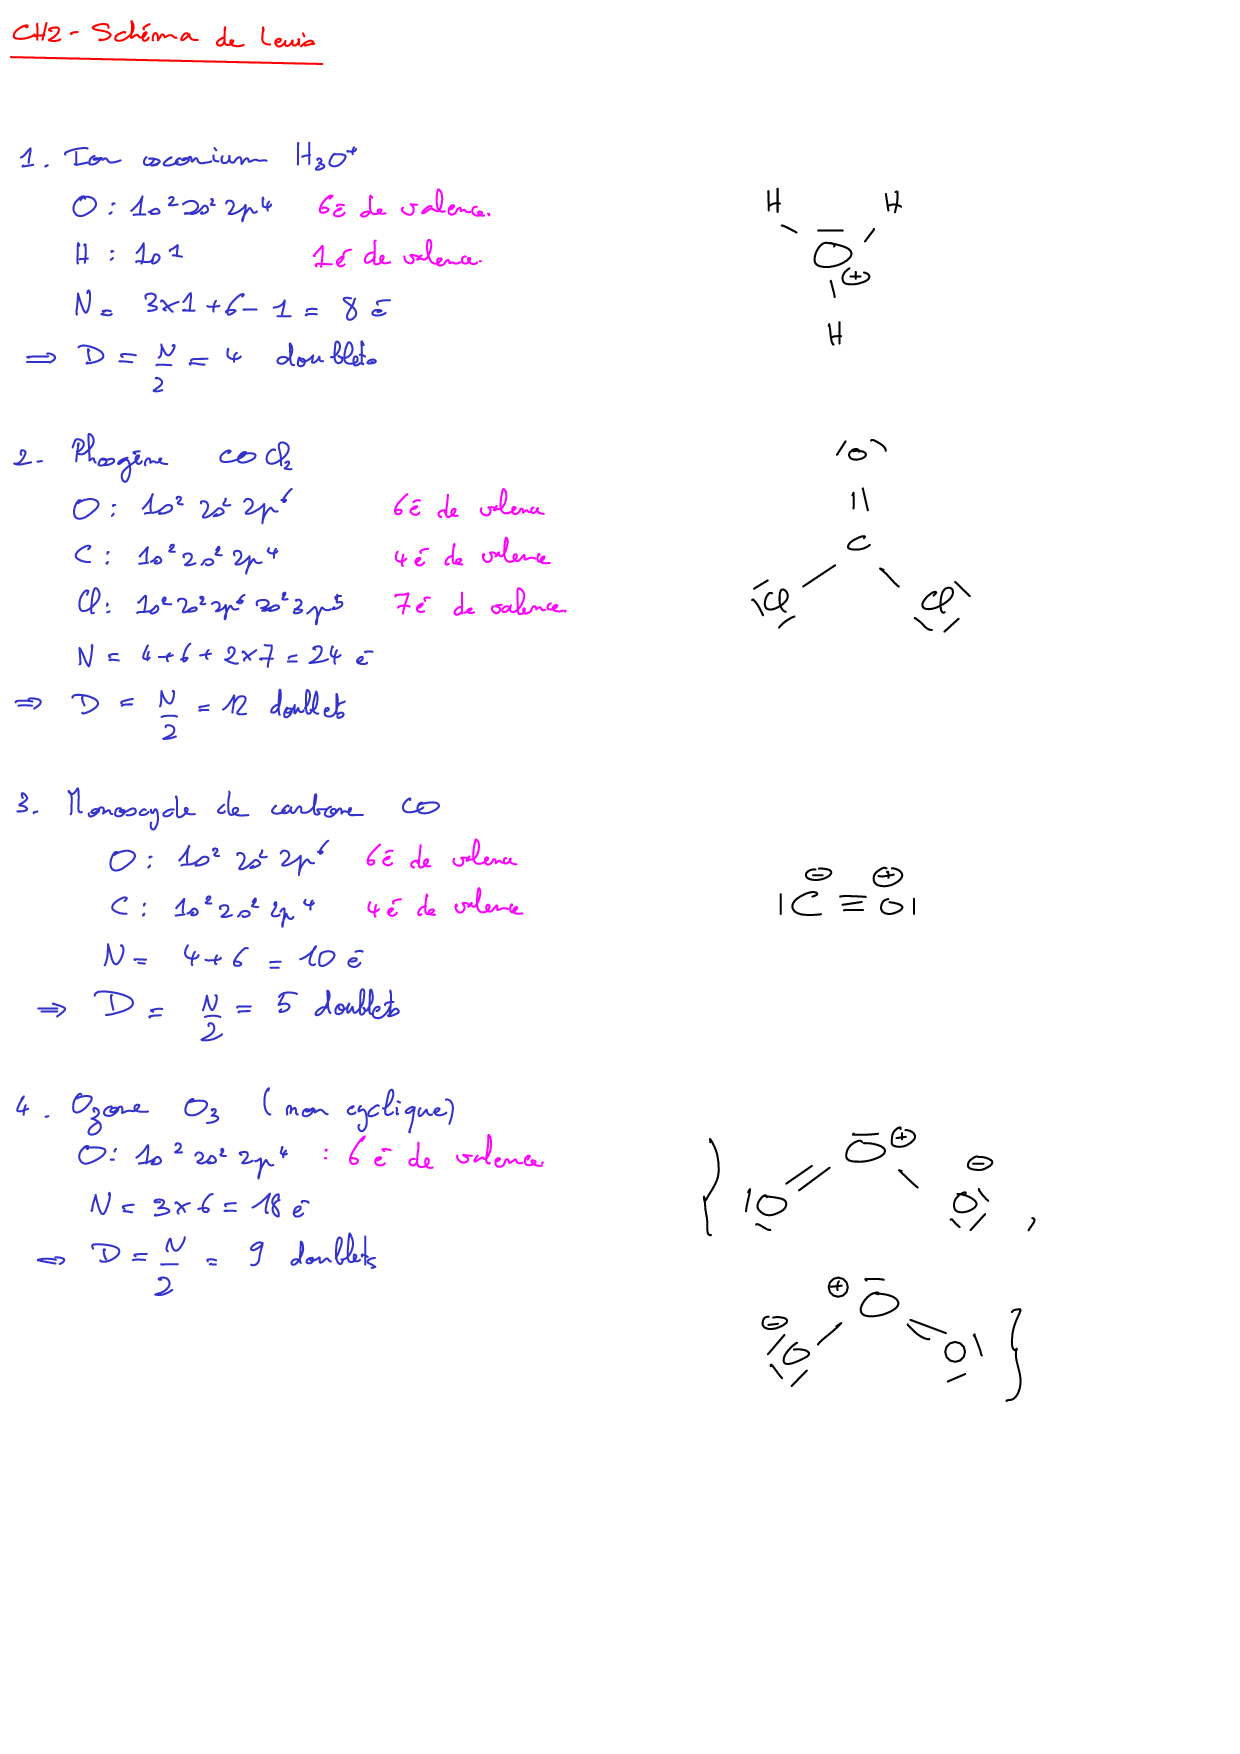 CH2 - Schéma de Lewis
1. Ion oxonium H₃O⁺
O : 1s² 2s² 2p⁴ 6é de valence.
H : 1s¹ 1é de valence.
N = 3×1 + 6 - 1 = 8 é
⇒ D = N/2 = 4 doublets
H H
O ⊕
H
2. Phosgène COCl₂
O : 1s² 2s² 2p⁶ 6é de valence
C : 1s² 2s² 2p⁴ 4é de valence
Cl : 1s² 2s² 2p⁶ 3s² 3p⁵ 7é de valence
N = 4 + 6 + 2×7 = 24 é
⇒ D = N/2 = 12 doublets
O
C
Cl Cl
3. Monoxyde de carbone CO
O : 1s² 2s² 2p⁶ 6é de valence
C : 1s² 2s² 2p⁴ 4é de valence
N = 4 + 6 = 10 é
⇒ D = N/2 = 5 doublets
⊖ ⊕
|C ≡ O|
4. Ozone O₃ (non cyclique)
O : 1s² 2s² 2p⁴ : 6 é de valence
N = 3×6 = 18 é
⇒ D = N/2 = 9 doublets
{ O = O⊕ - O⊖ ,
⊖O - ⊕O = O }